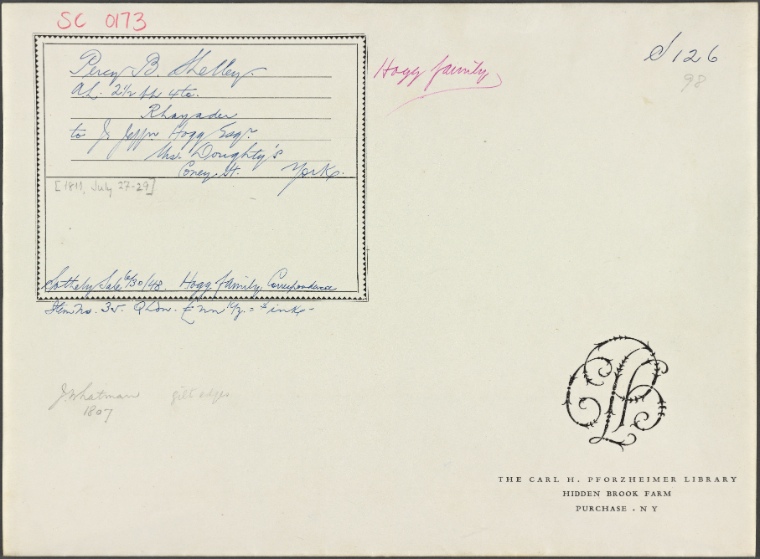 SC 0173
Percy B. Shelley.
AL. 2½ pp 4to.
Rhayader
to J Jeffn Hogg Esqr.
Mrs. Doughty's
Coney St. York.
[1811, July 27-29]
Sotheby Sale 6/30/48. Hogg family, Correspondence
Item No. 35.
Hogg family
S 126
98
J Whatman gilt edges
1807
THE CARL H. PFORZHEIMER LIBRARY
HIDDEN BROOK FARM
PURCHASE . N Y